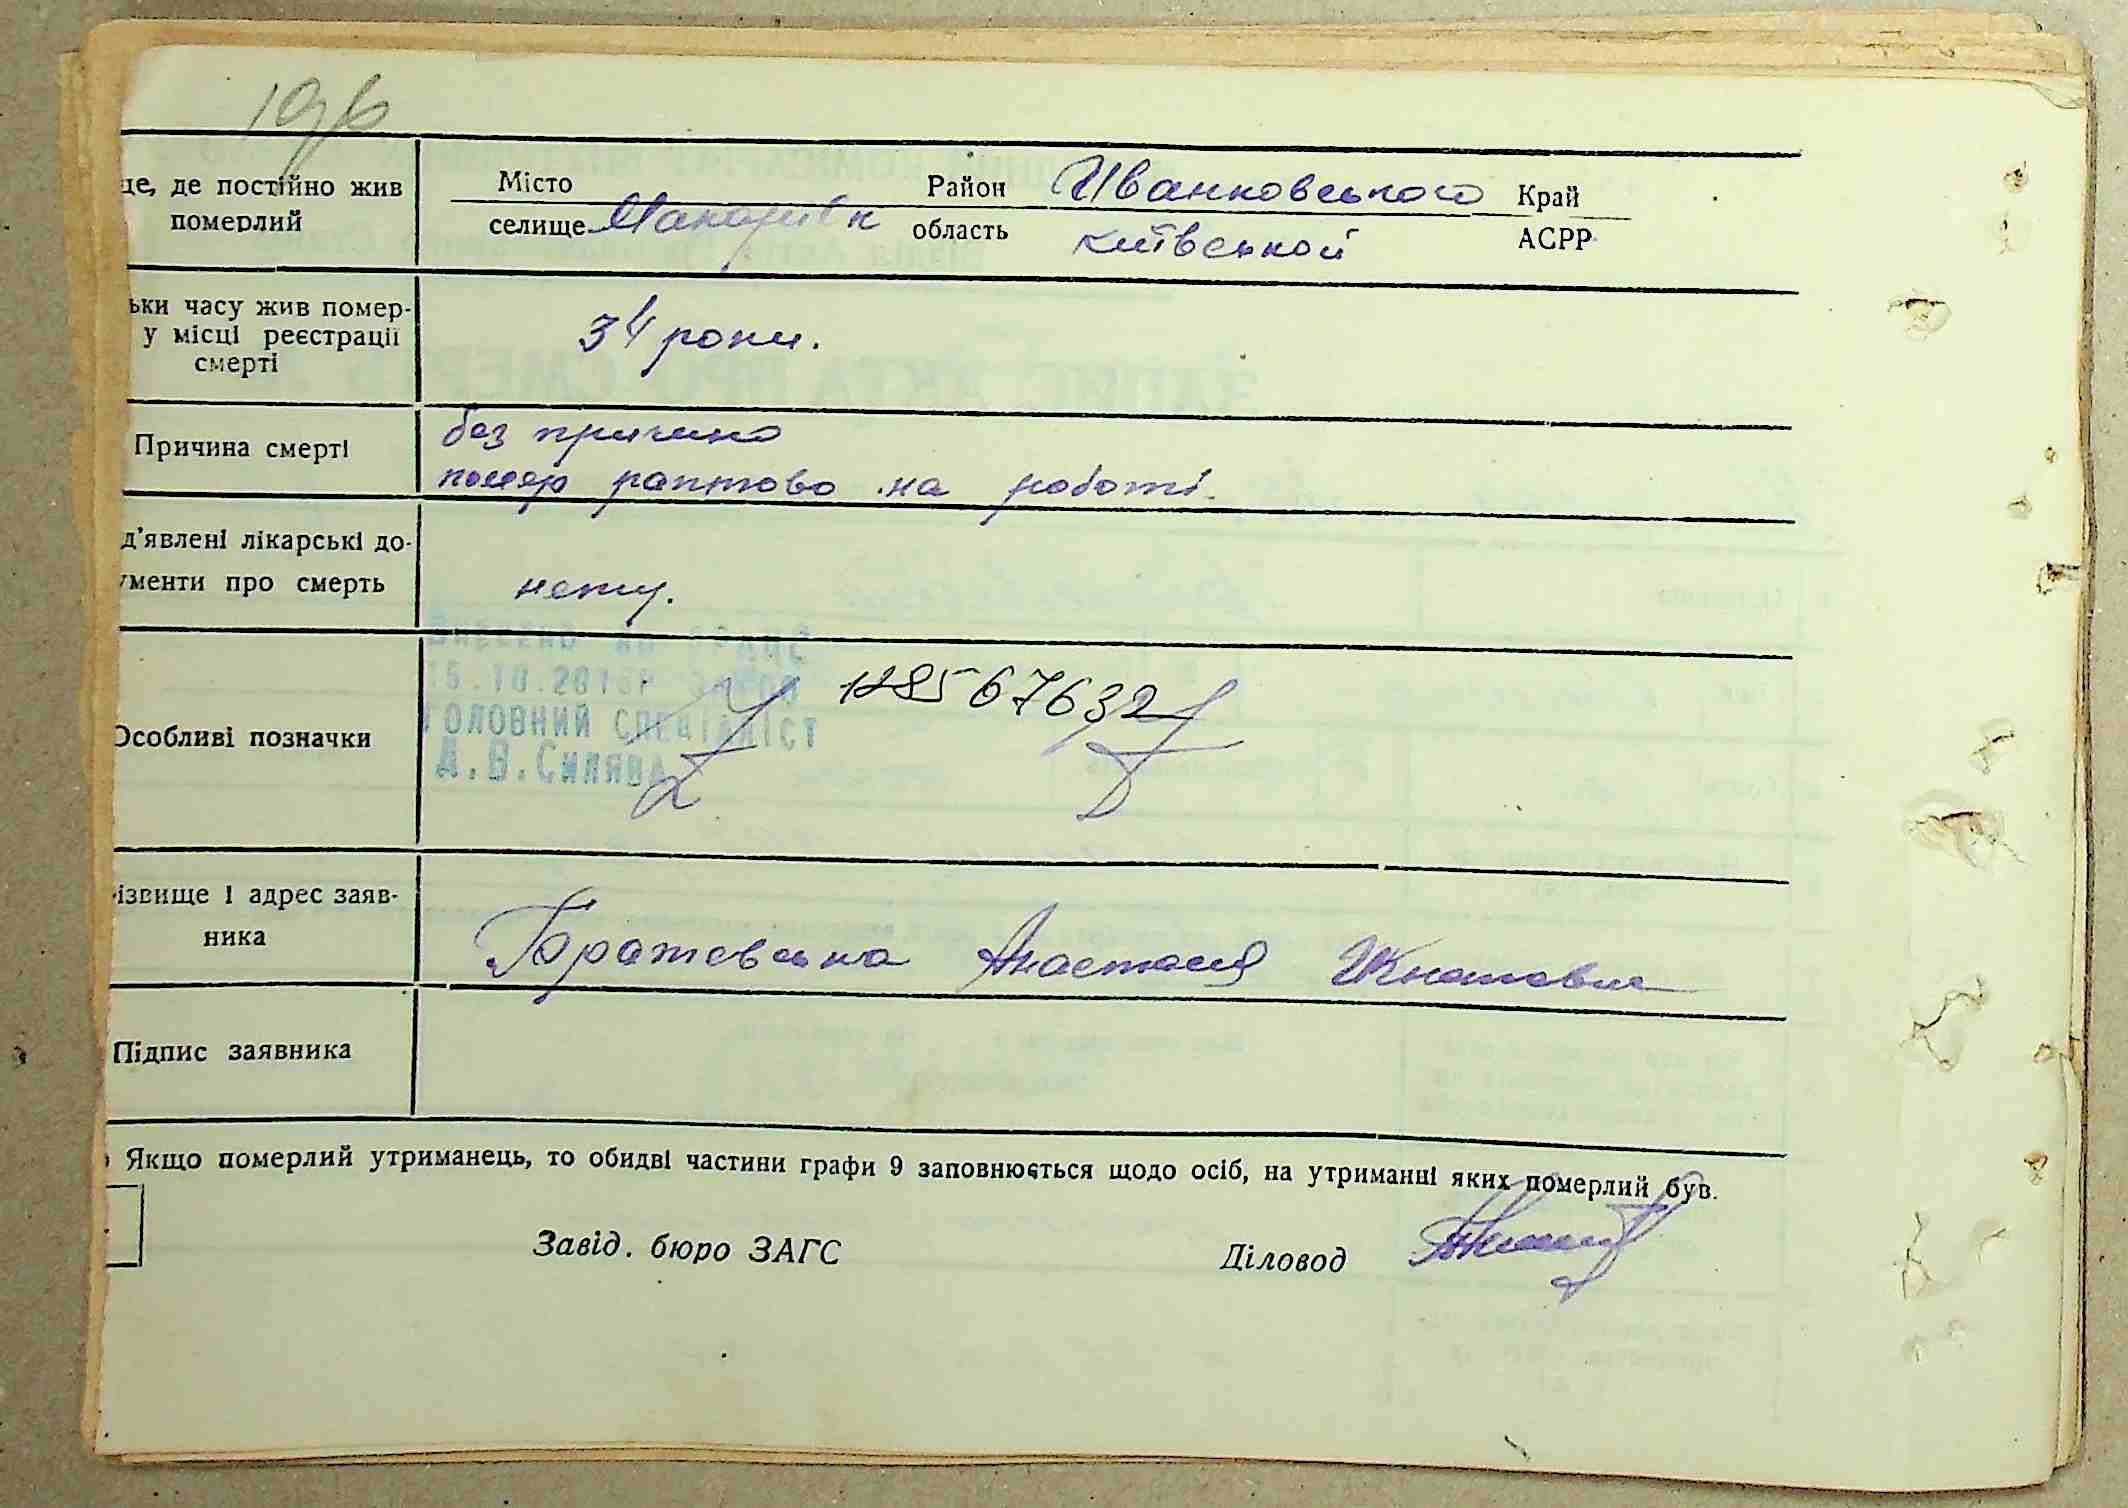 196
це, де постійно жив
померлий
Місто
селище Макарівк
Район Иванковського
область київської
Край
АСРР
ьки часу жив помер-
у місці реєстрації
смерті
34 роки.
Причина смерті
без причино
помер раптово на роботі.
д'явлені лікарські до-
ументи про смерть
нету.
Особливі позначки
Внесено до ДРАЦС
ГОЛОВНИЙ СПЕЦІАЛІСТ
А.В.Силява
12856 7632
ізвище і адрес заяв-
ника
Анастасія Игнатовна
Підпис заявника
Якщо померлий утриманець, то обидві частини графи 9 заповнюється щодо осіб, на утриманні яких померлий був.
Завід. бюро ЗАГС
Діловод